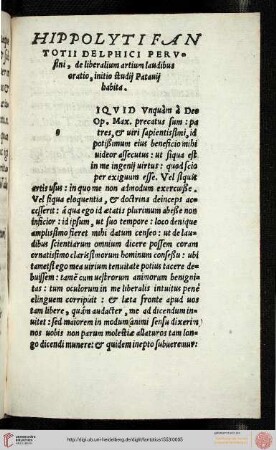 HIPPOLYTI FAN
TOTII DELPHICI PERV-
sini, de liberalium artium laudibus
oratio, initio studij Patauij
habita.
IQVID Vnquàm à Deo
Op. Max. precatus sum: pa
tres, & uiri sapientissimi, id
potissimum eius beneficio mihi
uideor assecutus: ut siqua est
in me ingenij uirtus: quod scio
per exiguum esse. Vel siquis
artis usus: in quo me non ad modum exercuisse.
Vel siqua eloquentia, & doctrina deinceps ac-
cesserit: à qua ego id ætatis plurimum abesse non
inficior: id ipsum, ut suo tempore: loco denique
amplissimo fieret mihi datum censeo: ut de lau-
dibus scientiarum omnium dicere possem coram
ornatissimo clarissimorum hominum consessu: ubi
tametsi ego mea uirium tenuitate potius tacere de-
buissem: tamẽ cum uestrorum animorum benigni-
tas: tum oculorum in me liberalis intuitus penè
elinguem corripuit: & læta fronte apud uos
tam libere, quàm audacter, me ad dicendum in-
uitet: sed maiorem in modum animi sensu dixerim
nos uobis non parum molestiæ allaturos tam lon-
go dicendi munere: & quidem inepto subuereniur:
http://digi.ub.uni-heidelberg.de/diglit/fantotius1553/0005